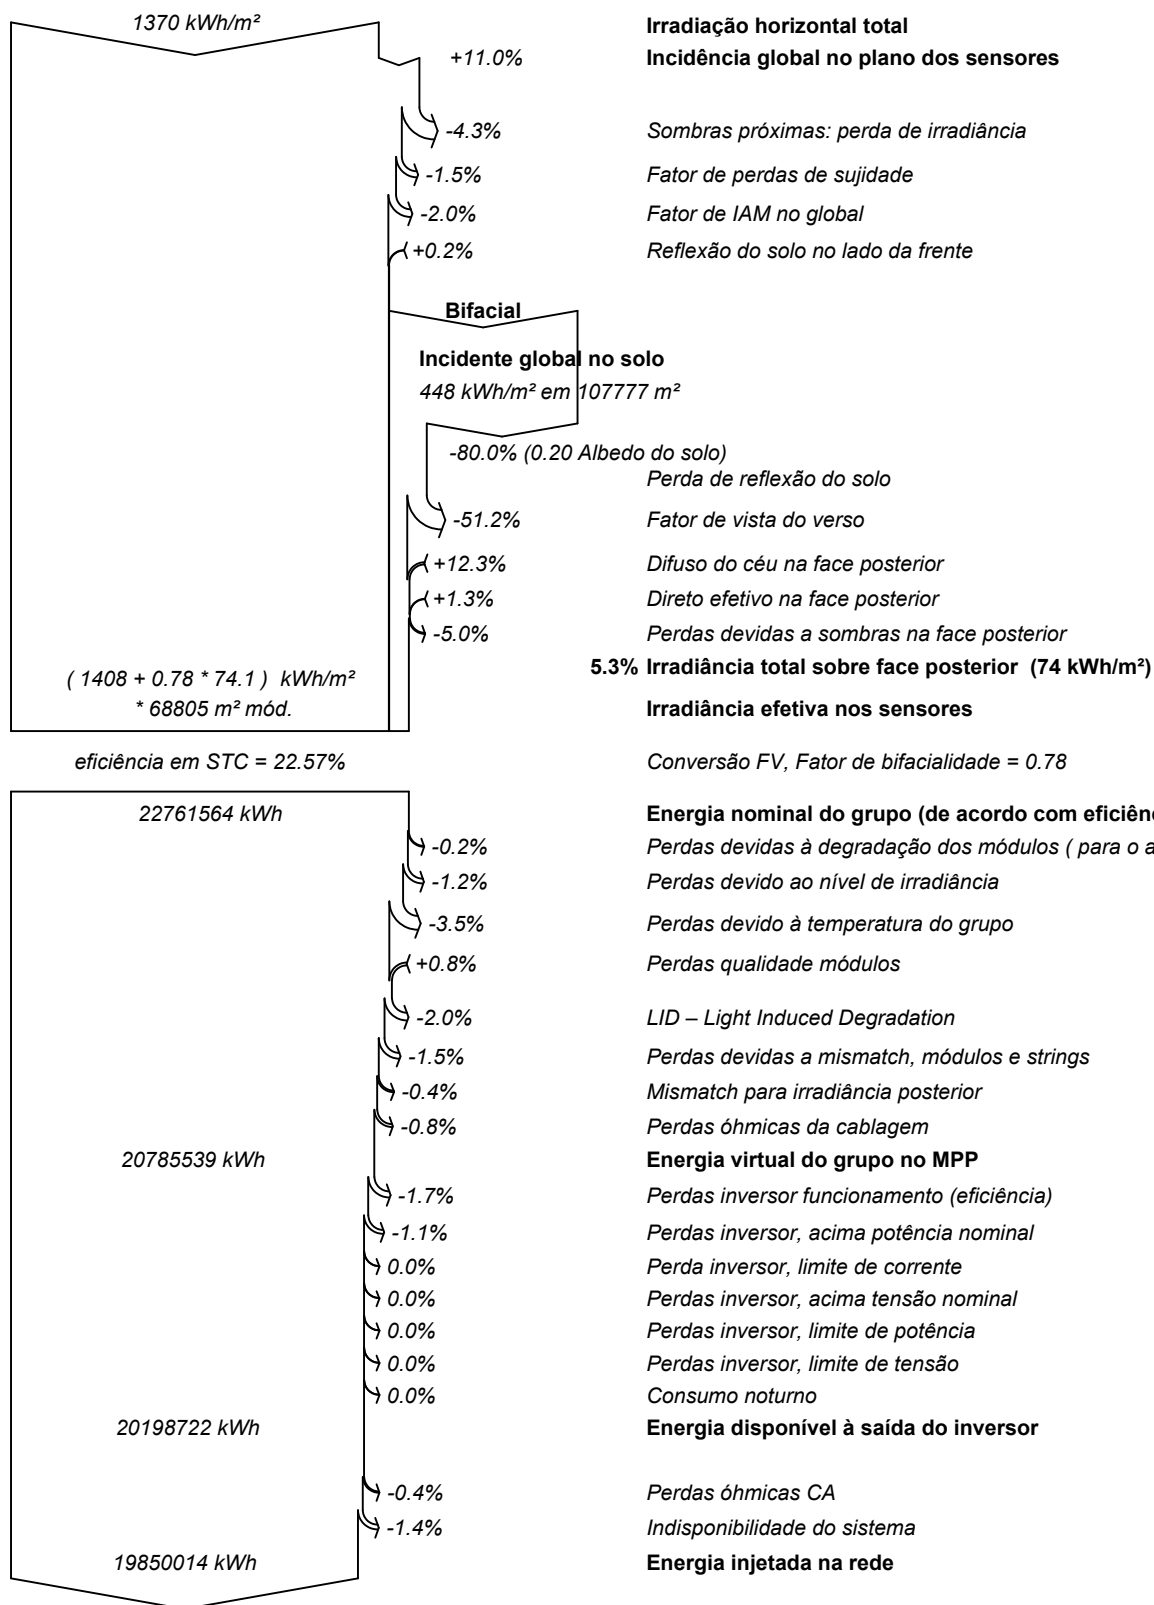 1370 kWh/m² Irradiação horizontal total
+11.0% Incidência global no plano dos sensores
-4.3% Sombras próximas: perda de irradiância
-1.5% Fator de perdas de sujidade
-2.0% Fator de IAM no global
+0.2% Reflexão do solo no lado da frente
Bifacial
Incidente global no solo
448 kWh/m² em 107777 m²
-80.0% (0.20 Albedo do solo)
Perda de reflexão do solo
-51.2% Fator de vista do verso
+12.3% Difuso do céu na face posterior
+1.3% Direto efetivo na face posterior
-5.0% Perdas devidas a sombras na face posterior
5.3% Irradiância total sobre face posterior (74 kWh/m²)
( 1408 + 0.78 * 74.1 ) kWh/m²
* 68805 m² mód. Irradiância efetiva nos sensores
eficiência em STC = 22.57% Conversão FV, Fator de bifacialidade = 0.78
22761564 kWh Energia nominal do grupo (de acordo com
-0.2% Perdas devidas à degradação dos módulos ( para o
-1.2% Perdas devido ao nível de irradiância
-3.5% Perdas devido à temperatura do grupo
+0.8% Perdas qualidade módulos
-2.0% LID – Light Induced Degradation
-1.5% Perdas devidas a mismatch, módulos e strings
-0.4% Mismatch para irradiância posterior
-0.8% Perdas óhmicas da cablagem
20785539 kWh Energia virtual do grupo no MPP
-1.7% Perdas inversor funcionamento (eficiência)
-1.1% Perdas inversor, acima potência nominal
0.0% Perda inversor, limite de corrente
0.0% Perdas inversor, acima tensão nominal
0.0% Perdas inversor, limite de potência
0.0% Perdas inversor, limite de tensão
0.0% Consumo noturno
20198722 kWh Energia disponível à saída do inversor
-0.4% Perdas óhmicas CA
-1.4% Indisponibilidade do sistema
19850014 kWh Energia injetada na rede